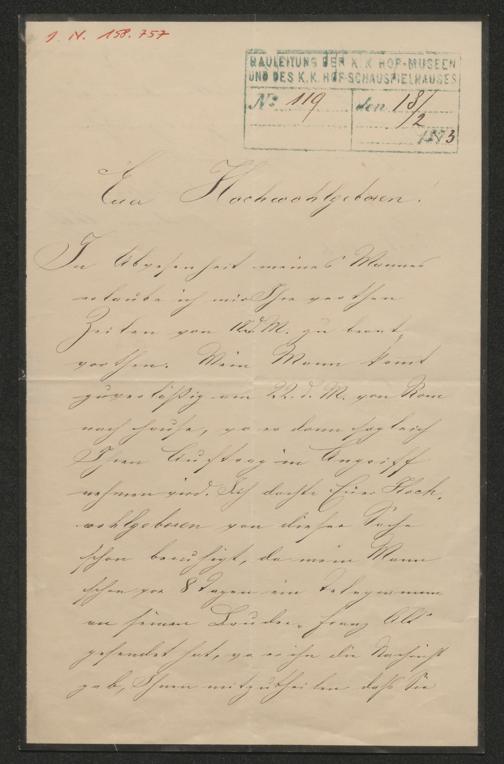 I. N. 158.757
BAULEITUNG DER K. K. HOF-MUSEEN
UND DES K. K. HOF-SCHAUSPIELHAUSES
No. 119 den 18/2
1883
Euer Hochwohlgeboren!
In Abwesenheit meines Mannes
erlaube ich mir Ihre werthen
Zeilen von d. M. zu beant-
worthen. Mein Mann komt
zuverläßig am 22. d. M. von Rom
nach Hause, wo er dann sogleich
Ihren Auftrag in Angriff
nehmen wird. Ich dachte Euer Hoch-
wohlgeboren von dieser Sache
schon beruhigt, da mein Mann
schon vor 8 Tagen ein Telegramm
an seinen Bruder, Franz Alt
gesendet hat, wo er ihn die Nachricht
gab, Ihnen mitzutheilen daß Sie